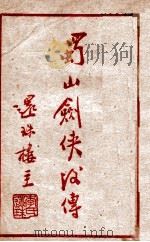 蜀山劍俠後傳
還珠樓主